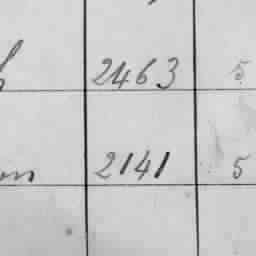 2463 5
on 2141 5